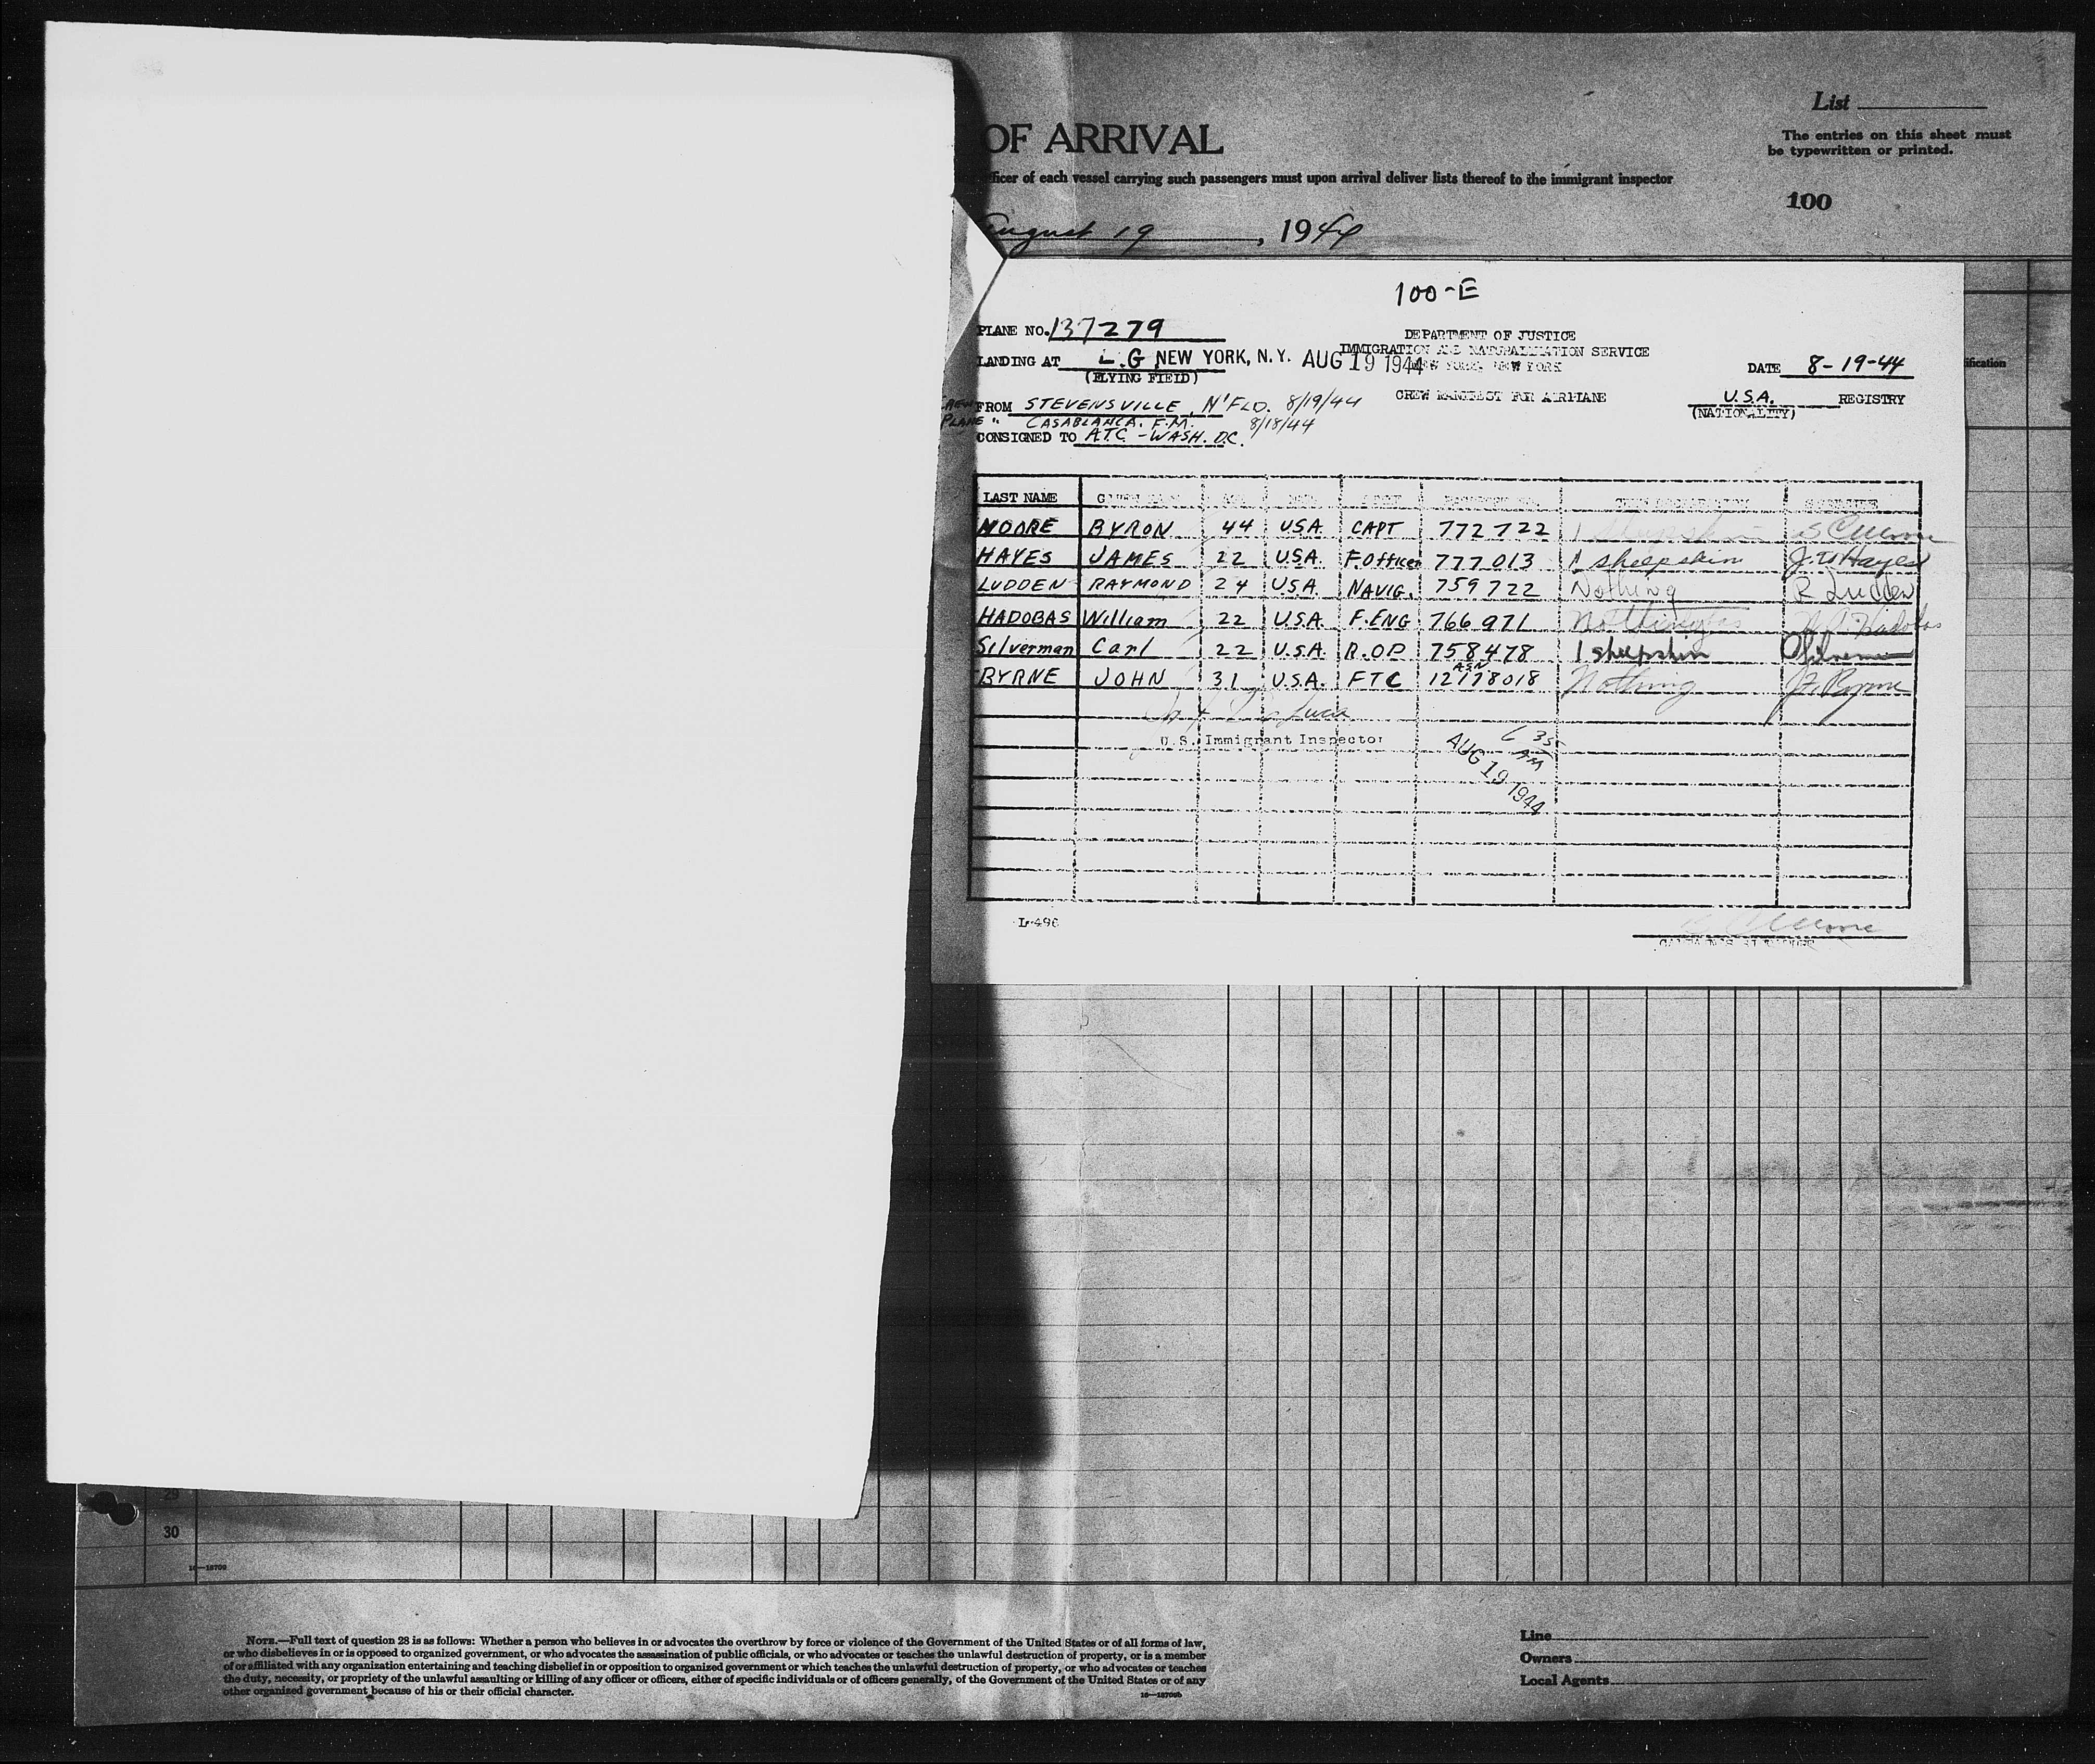 List
OF ARRIVAL
The entries on this sheet must
be typewritten or printed.
officer of each vessel carrying such passengers must upon arrival deliver lists thereof to the immigrant inspector
100
August 19, 1944
100-E
PLANE NO. 137279
DEPARTMENT OF JUSTICE
IMMIGRATION AND NATURALIZATION SERVICE
NEW YORK, NEW YORK
LANDING AT L.G. NEW YORK, N.Y. AUG 19 1944
(FLYING FIELD)
DATE 8-19-44
ification
CREW FROM STEVENSVILLE, N'FLD. 8/19/44
CREW MANIFEST FOR AIRPLANE
U.S.A. REGISTRY
(NATIONALITY)
PLANE " CASABLANCA, F.M. 8/18/44
CONSIGNED TO A.T.C. - WASH. D.C.
LAST NAME GIVEN NAME AGE
MOORE BYRON 44 USA CAPT 772722 1 sheepskin
HAYES JAMES 22 U.S.A. F.Officer 777013 1 sheepskin J. W Hayes
LUDDEN RAYMOND 24 U.S.A. NAVIG. 759722 Nothing R Ludden
HADOBAS William 22 U.S.A. F.ENG 766971 Nothing
Silverman Carl 22 U.S.A. R.OP 758478 1 sheepskin
BYRNE JOHN 31 U.S.A. FTC ASN 12178018 Nothing J. Byrne
U.S. Immigrant Inspector
6 35 AM
AUG 19 1944
L-496
CAPTAIN'S SIGNATURE
29
30
16—18709
NOTE.—Full text of question 28 is as follows: Whether a person who believes in or advocates the overthrow by force or violence of the Government of the United States or of all forms of law,
or who disbelieves in or is opposed to organized government, or who advocates the assassination of public officials, or who advocates or teaches the unlawful destruction of property, or is a member
of or affiliated with any organization entertaining and teaching disbelief in or opposition to organized government or which teaches the unlawful destruction of property, or who advocates or teaches
the duty, necessity, or propriety of the unlawful assaulting or killing of any officer or officers, either of specific individuals or of officers generally, of the Government of the United States or of any
other organized government because of his or their official character.
16—18709b
Line
Owners
Local Agents